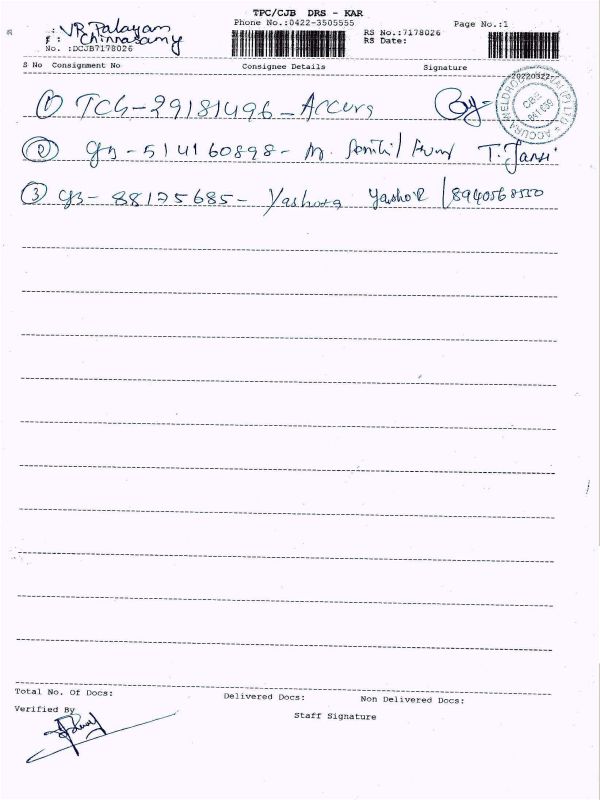 TPC/CJB DRS - KAR
Phone No.:0422-3505555
Page No.:1
: VR Palayam
: Chinnasamy
No. :DCJB7178026
RS No.:7178026
RS Date:
S No Consignment No Consignee Details Signature
20220322
① TCG-29181496-Accura
② 514160898- M.
③ 88125685- Yashova Yasho R /8940568550
Total No. Of Docs: Delivered Docs: Non Delivered Docs:
Verified By
Staff Signature